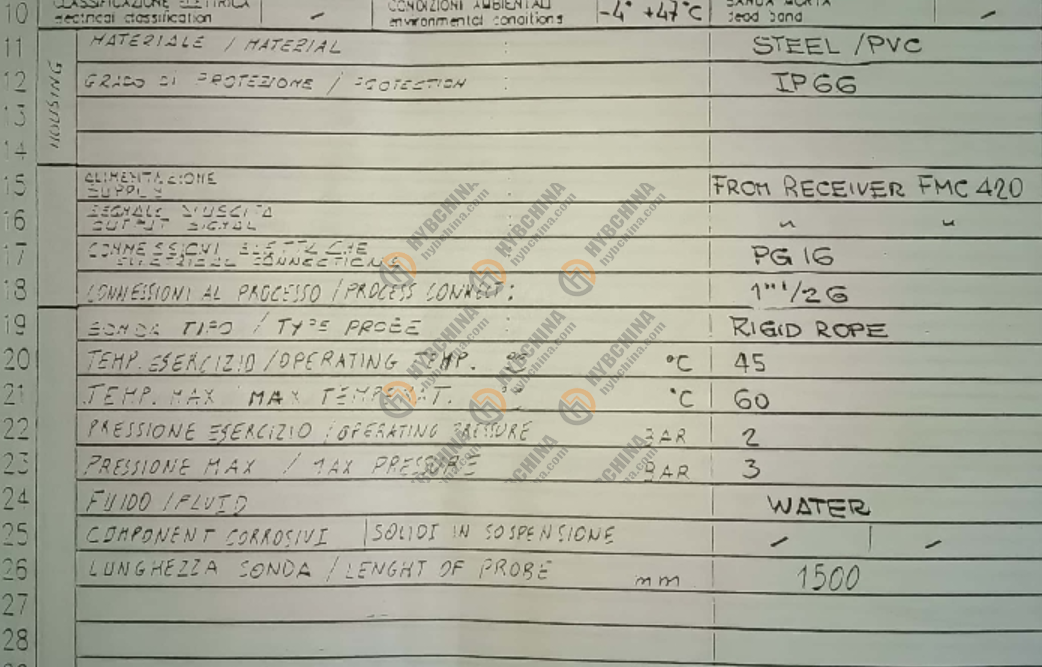 10 CLASSIFICAZIONE ELETTRICA - CONDIZIONI AMBIENTALI -4° +47°C BANDA MORTA -
electrical classification environmental conditions dead band
11 MATERIALE / MATERIAL : STEEL /PVC
12 GRADO DI PROTEZIONE / PROTECTION : IP66
HOUSING
13
14
15 ALIMENTAZIONE : FROM RECEIVER FMC 420
SUPPLY
16 SEGNALE D'USCITA " "
OUTPUT SIGNAL
17 CONNESSIONI ELETTRICHE PG 16
ELECTRICAL CONNECTIONS
18 CONNESSIONI AL PROCESSO / PROCESS CONNECT: 1"1/2G
19 SONDA TIPO / TYPE PROBE : RIGID ROPE
20 TEMP. ESERCIZIO / OPERATING TEMP. °C °C 45
21 TEMP. MAX MAX TEMPERAT. °C 60
22 PRESSIONE ESERCIZIO / OPERATING PRESSURE BAR 2
23 PRESSIONE MAX / MAX PRESSURE BAR 3
24 FUIDO / FLUID WATER
25 COMPONENT CORROSIVI SOLIDI IN SOSPENSIONE - -
26 LUNGHEZZA SONDA / LENGHT OF PROBE mm 1500
27
28
HYBCHINA
hybchina.com
HYBCHINA
hybchina.com
HYBCHINA
hybchina.com
HYBCHINA
hybchina.com
HYBCHINA
hybchina.com
HYBCHINA
hybchina.com